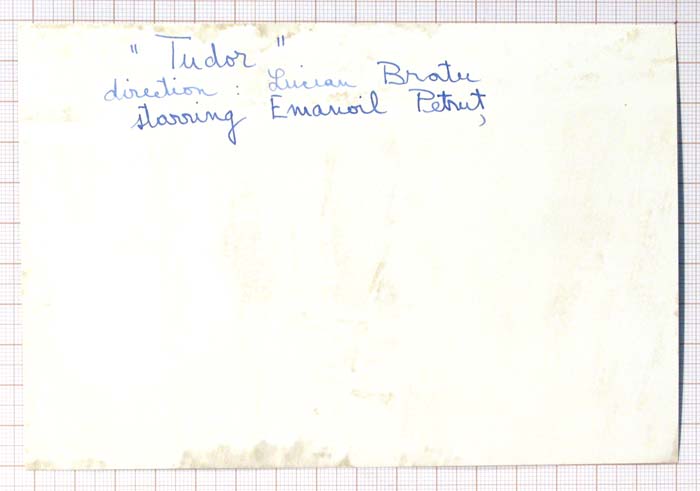 " Tudor "
direction : Lucian Bratu
starring Emanoil Petruț